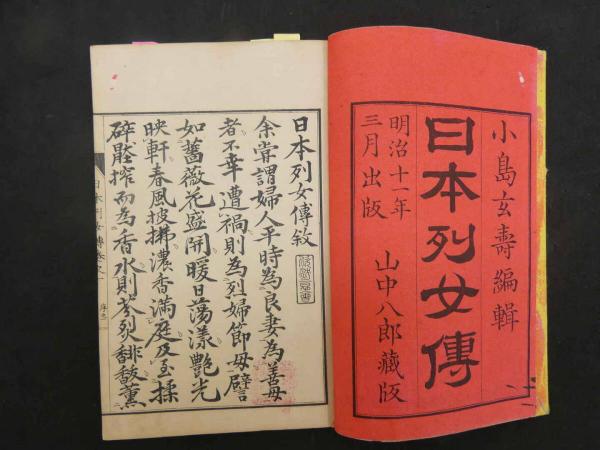 小島玄壽編輯
日本列女傳
明治十一年
三月出版
山中八郎藏版
日本列女傳敘
余嘗謂婦人平時為良妻為善母
者不幸遭禍則為烈婦節母譬
如薔薇花盛開暖日蕩漾艷光
映軒春風披拂濃香滿庭及至揉
碎壓搾而為香水則芬烈馡馥薰
日本列女傳卷之一
序一